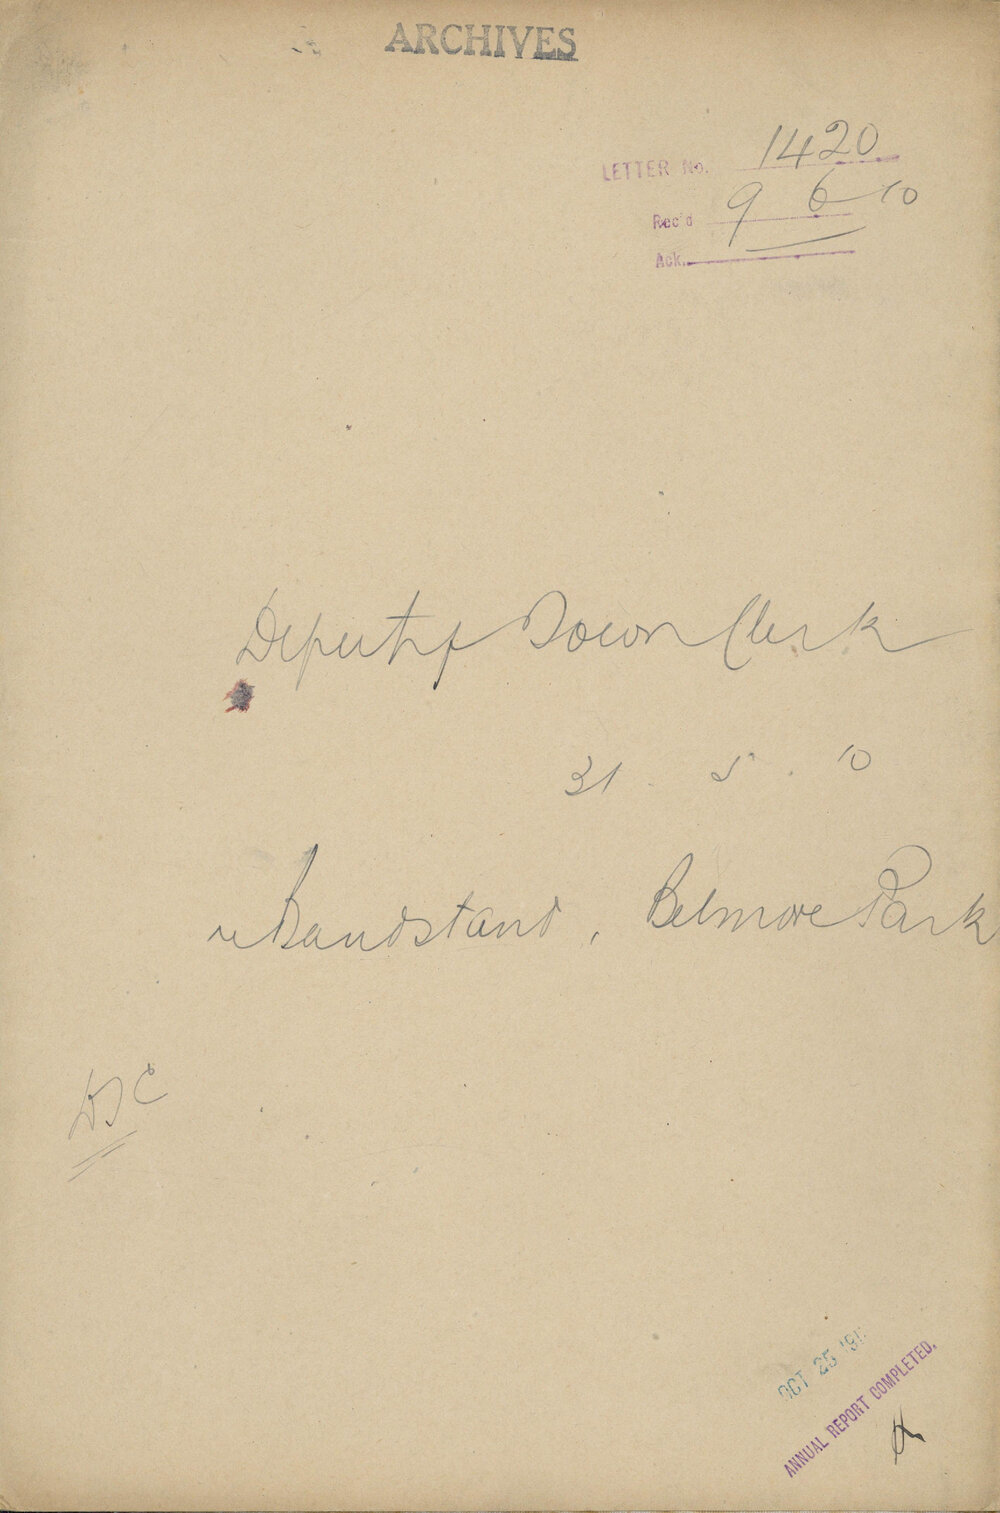 ARCHIVES
LETTER No. 1420
Rec'd 9 6 10
Ack.
Deputy Town Clerk
31 . 5 . 10
re Bandstand, Belmore Park
DTC
OCT 25 '91
ANNUAL REPORT COMPLETED.